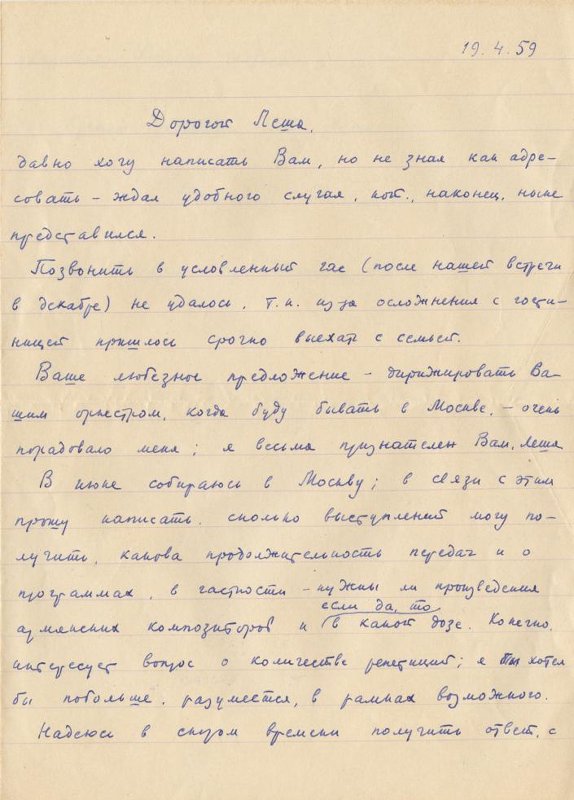 19.4.59
Дорогой Леша,
давно хочу написать Вам, но не зная как адре-
совать – ждал удобного случая, кот., наконец, ныне
представился.
Позвонить в условленный час (после нашей встречи
в декабре) не удалось, т.к. из за осложнения с гости-
ницей пришлось срочно выехать с семьей.
Ваше любезное предложение – дирижировать Ва-
шим оркестром, когда буду бывать в Москве, – очень
порадовало меня; я весьма признателен Вам, Леша
В июне собираюсь в Москву; в связи с этим
прошу написать, сколько выступлений могу по-
лучить, какова продолжительность передач и о
программах, в частности – нужны ли произведения
если да, то
армянских композиторов и в какой дозе. Конечно,
интересует вопрос о количестве репетиций; я хотел
бы побольше, разумеется, в рамках возможного.
Надеюсь в скором времени получить ответ, с